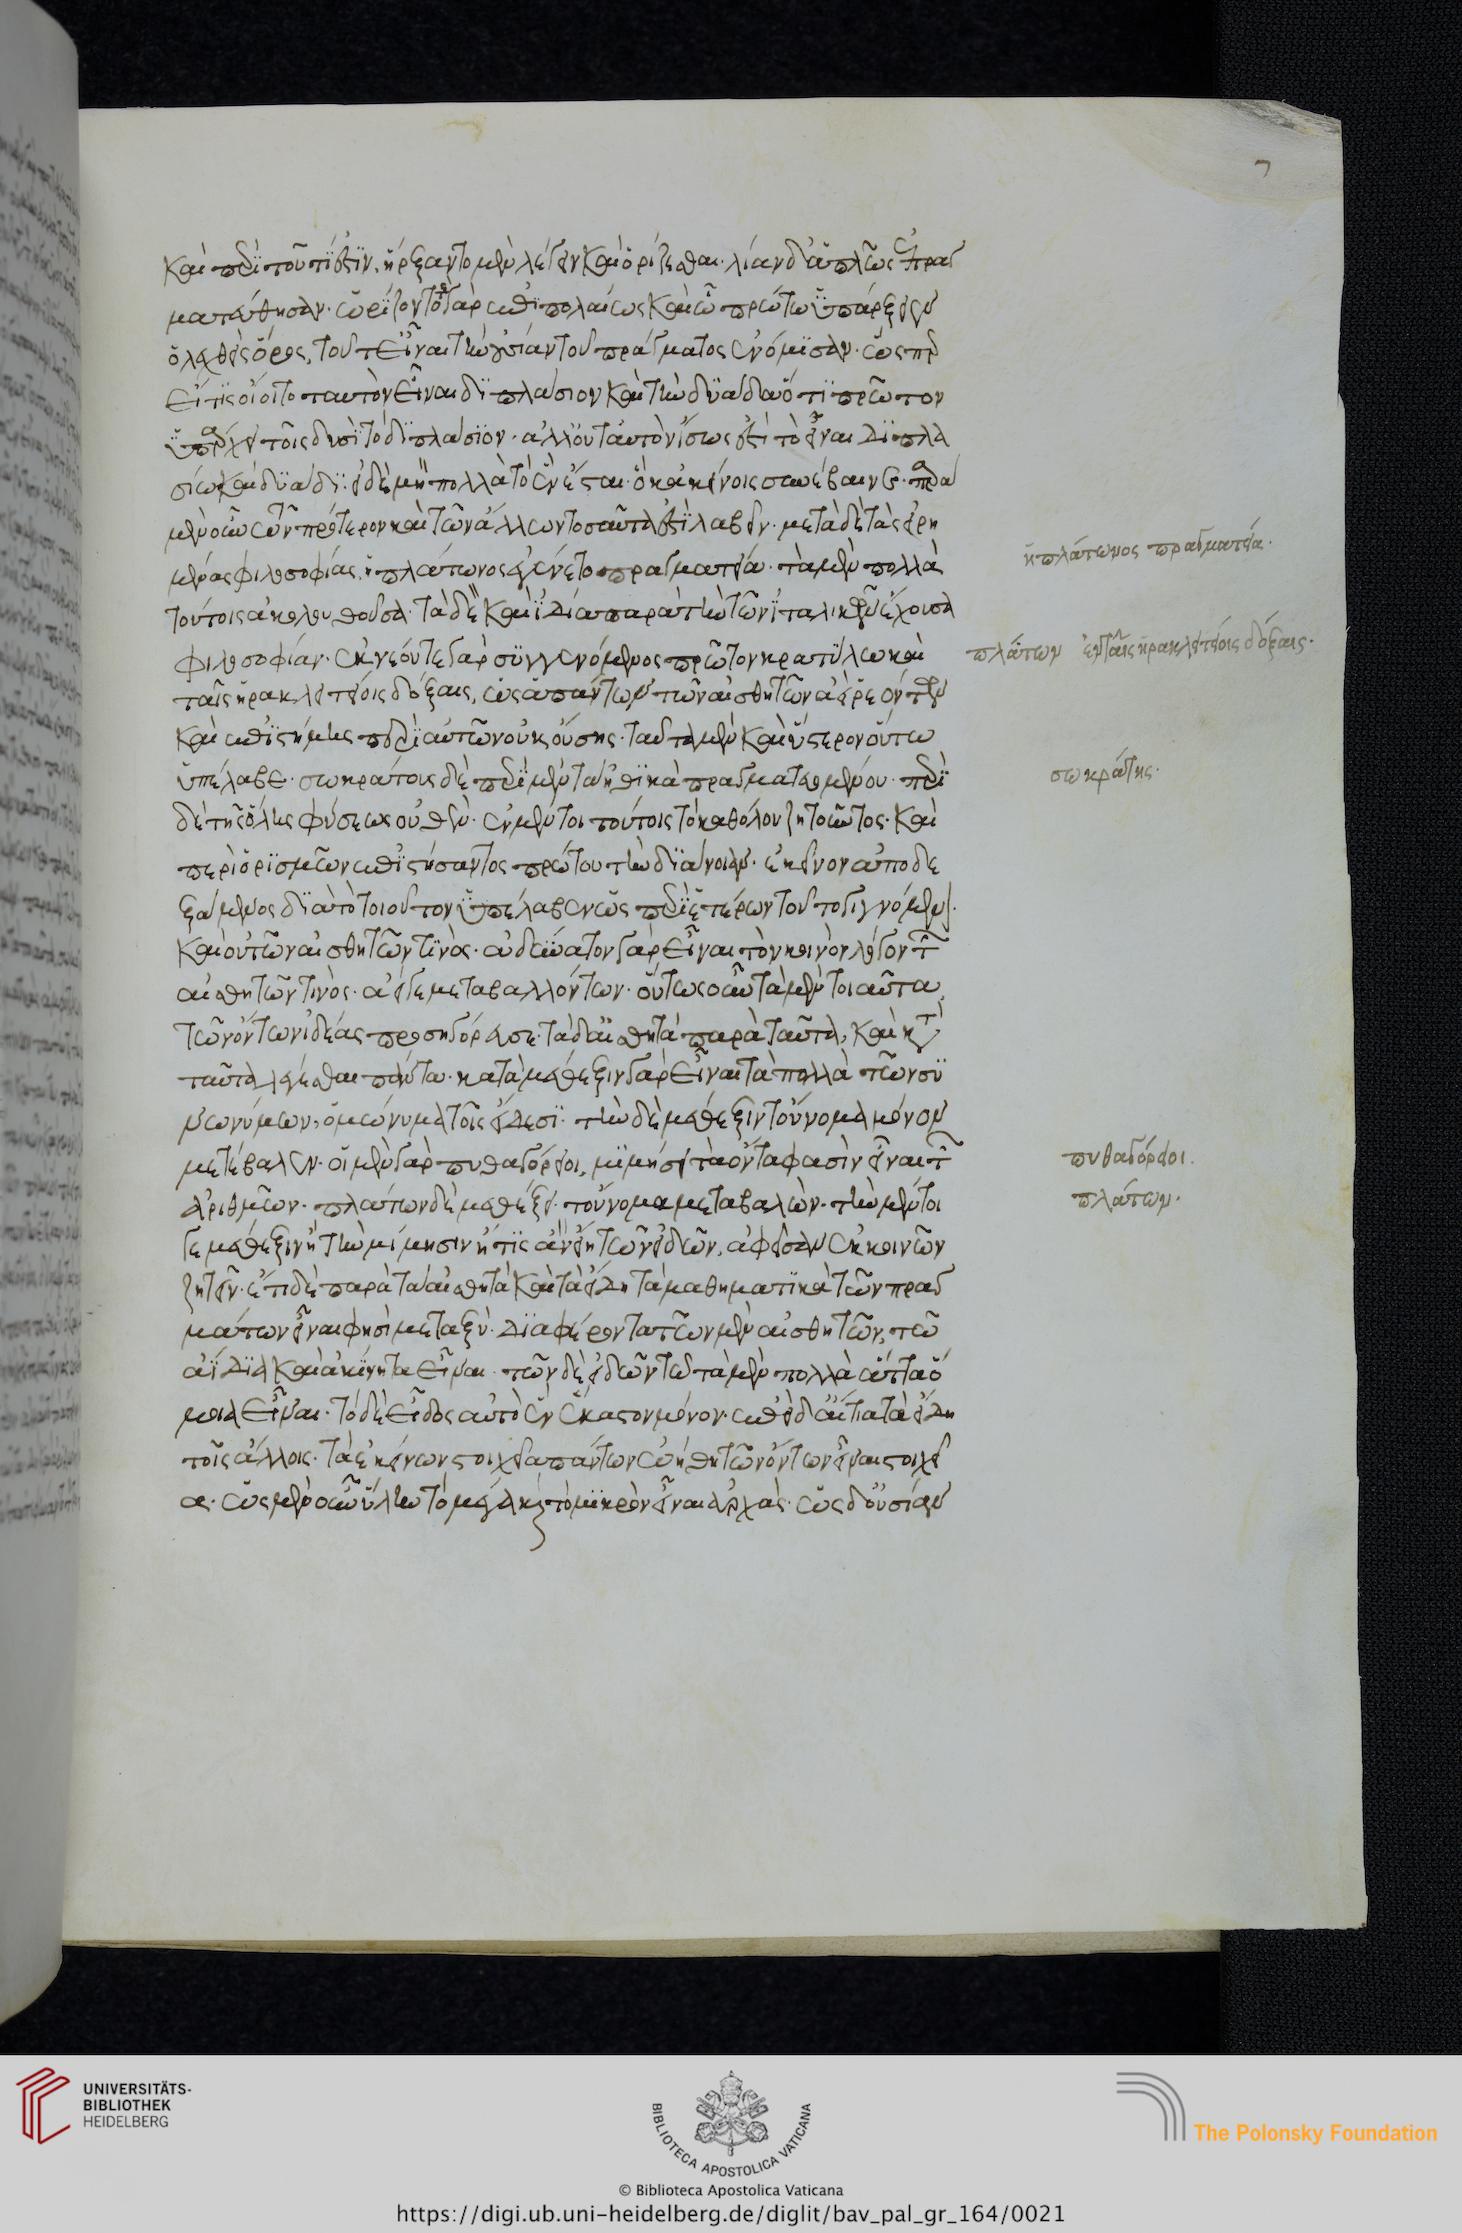 7
καὶ περὶ τοῦ τί ἐστιν, ἤρξαντο μὲν λέγειν καὶ ὁρίζεσθαι· λίαν δ' ἁπλῶς ἐπραγ
ματεύθησαν· ὡρίζοντό τε γὰρ ἐπιπολαίως καὶ ᾧ πρώτῳ ὑπάρξειεν
ὁ λεχθεὶς ὅρος, τοῦτ' εἶναι τὴν οὐσίαν τοῦ πράγματος ἐνόμισαν· ὥσπερ
εἴ τις οἴοιτο ταυτὸν εἶναι διπλάσιον καὶ τὴν δυάδα ὅτι πρῶτον
ὑπάρχει τοῖς δυσὶ τὸ διπλάσιον· ἀλλ' οὐ ταὐτὸν ἴσως ἐστὶ τὸ εἶναι διπλα
σίῳ καὶ δυάδι· εἰ δὲ μὴ πολλὰ τὸ ἓν ἔσται· ὃ κἀκείνοις συνέβαινεν· παρὰ
μὲν οὖν τῶν πρότερον καὶ τῶν ἄλλων τοσαῦτα ἔστι λαβεῖν· μετὰ δὲ τὰς εἰρη
μένας φιλοσοφίας, ἡ πλάτωνος ἐγένετο πραγματεία· τὰ μὲν πολλὰ
τούτοις ἀκολουθοῦσα· τὰ δὲ καὶ ἴδια παρὰ τὴν τῶν ἰταλικῶν ἔχουσα
φιλοσοφίαν· ἐκ νέου τε γὰρ συγγενόμενος πρῶτον κρατύλῳ καὶ
ταῖς ἡρακλειτείοις δόξαις, ὡς ἁπάντων τῶν αἰσθητῶν ἀεὶ ῥεόντων
καὶ ἐπιστήμης περὶ αὐτῶν οὐκ οὔσης· ταῦτα μὲν καὶ ὕστερον οὕτω
ὑπέλαβε· σωκράτους δὲ περὶ μὲν τὰ ἠθικὰ πραγματευομένου· περὶ
δὲ τῆς ὅλης φύσεως οὐθὲν· ἐν μέντοι τούτοις τὸ καθόλου ζητοῦντος· καὶ
περὶ ὁρισμῶν ἐπιστήσαντος πρώτου τὴν διάνοιαν· ἐκεῖνον ἀποδε
ξάμενος διὰ τὸ τοιοῦτον ὑπέλαβεν ὡς περὶ ἑτέρων τοῦτο γιγνόμενον·
καὶ οὐ τῶν αἰσθητῶν τινὸς· ἀδύνατον γὰρ εἶναι τὸν κοινὸν λόγον τῶν
αἰσθητῶν τινὸς· ἀεί γε μεταβαλλόντων· οὕτως οὖν τὰ μὲν τοιαῦτα
τῶν ὄντων ἰδέας προσηγόρευσε· τὰ δ' αἰσθητὰ παρὰ ταῦτα, καὶ κατὰ
ταῦτα λέγεσθαι πάντα· κατὰ μέθεξιν γὰρ εἶναι τὰ πολλὰ τῶν συ
νωνύμων, ὁμώνυμα τοῖς εἴδεσι· τὴν δὲ μέθεξιν τοὔνομα μόνον
μετέβαλεν· οἱ μὲν γὰρ πυθαγόρειοι, μιμήσει τὰ ὄντα φασὶν εἶναι τῶν
ἀριθμῶν· πλάτων δὲ μεθέξει τοὔνομα μεταβαλὼν· τὴν μέντοι
γε μέθεξιν ἢ τὴν μίμησιν ἥτις ἂν εἴη τῶν εἰδῶν, ἀφεῖσαν ἐν κοινῷ
ζητεῖν· ἔτι δὲ παρὰ τὰ αἰσθητὰ καὶ τὰ εἴδη τὰ μαθηματικὰ τῶν πραγ
μάτων εἶναι φησὶ μεταξὺ· διαφέροντα τῶν μὲν αἰσθητῶν, τῷ
ἀΐδια καὶ ἀκίνητα εἶναι· τῶν δὲ εἰδῶν τῷ τὰ μὲν πολλὰ ἄττα ὅ
μοια εἶναι· τὸ δὲ εἶδος αὐτὸ ἓν ἕκαστον μόνον· ἐπεὶ δ' αἴτια τὰ εἴδη
τοῖς ἄλλοις· τὰ ἐκείνων στοιχεῖα πάντων ᾠήθη τῶν ὄντων εἶναι στοιχεῖ
α· ὡς μὲν οὖν ὕλην τὸ μέγα καὶ τὸ μικρὸν εἶναι ἀρχὰς· ὡς δ' οὐσίαν
ἡ πλάτωνος πραγματεία·
πλάτων ἐν ταῖς ἡρακλειτείοις δόξαις·
σωκράτης·
πυθαγόρειοι.
πλάτων·
UNIVERSITÄTS-
BIBLIOTHEK
HEIDELBERG
BIBLIOTECA APOSTOLICA VATICANA
The Polonsky Foundation
© Biblioteca Apostolica Vaticana
https://digi.ub.uni-heidelberg.de/diglit/bav_pal_gr_164/0021